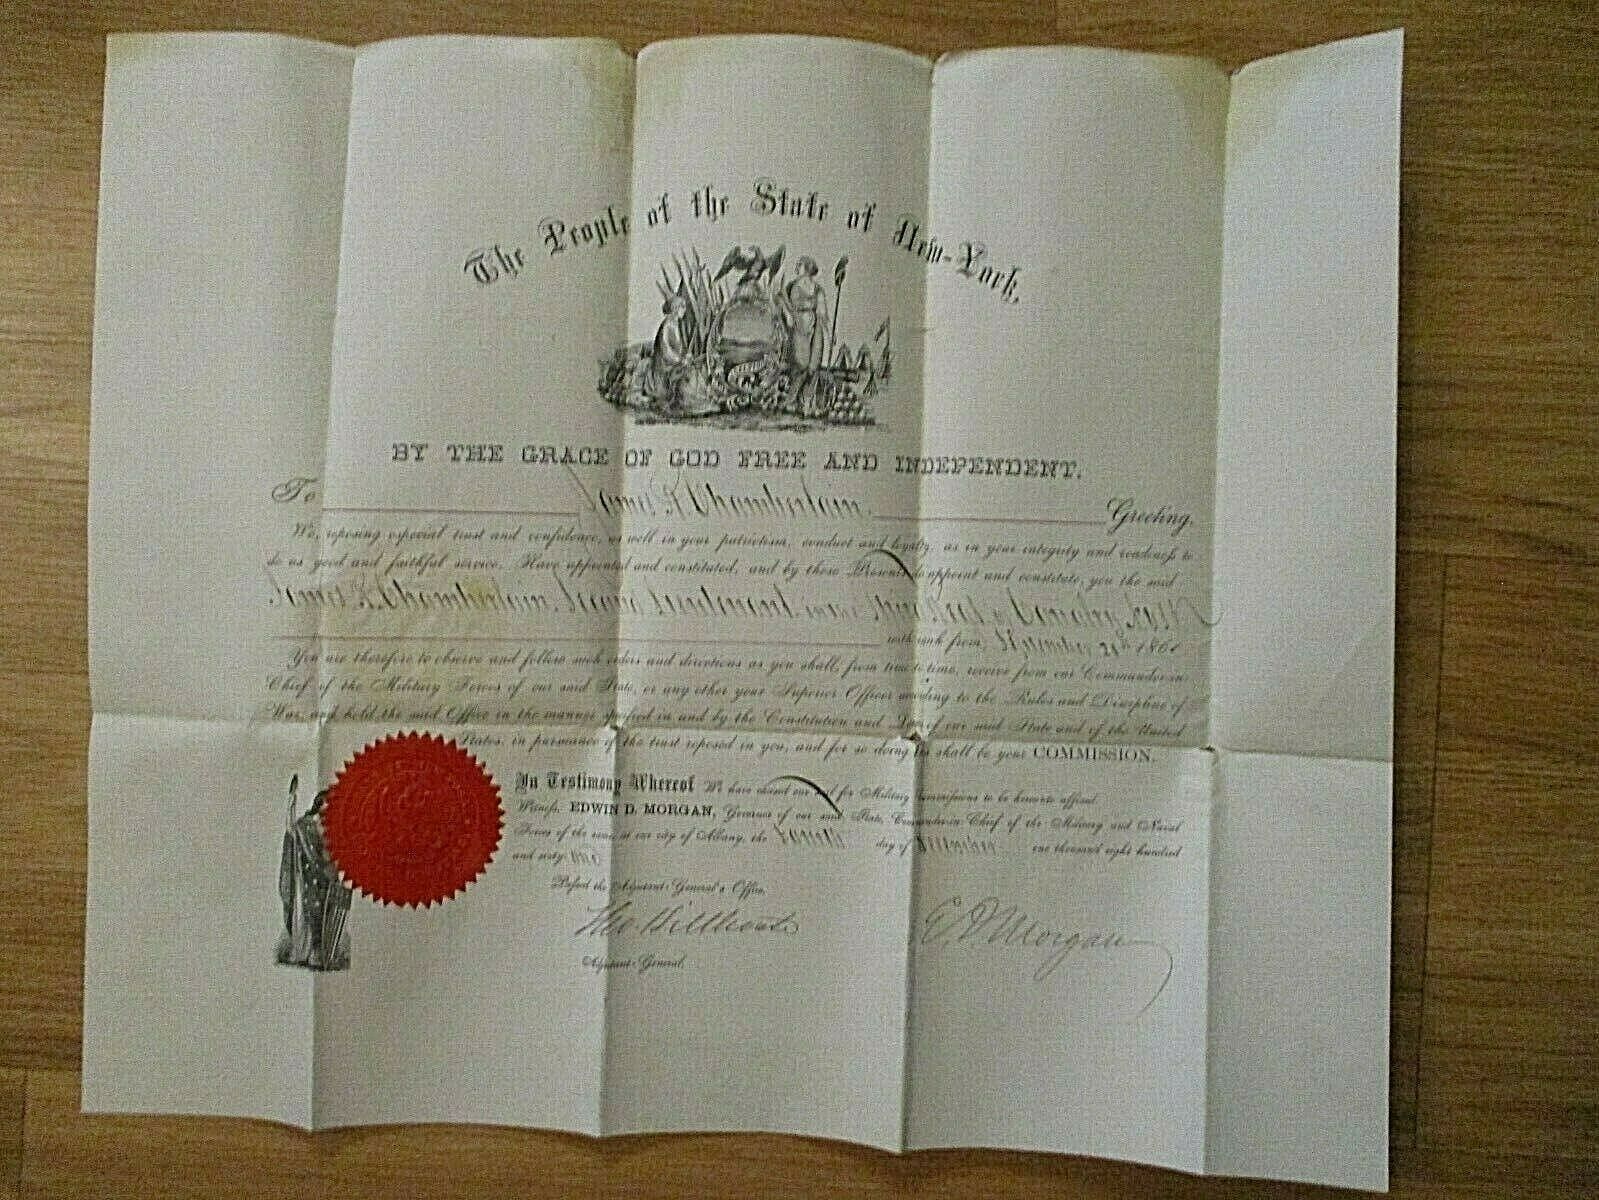 The People of the State of New-York,
BY THE GRACE OF GOD FREE AND INDEPENDENT.
To James F. Chamberlain. Greeting,
We, reposing especial trust and confidence, as well in your patriotism, conduct and loyalty, as in your integrity and readiness to
do us good and faithful service, Have appointed and constituted, and by these Presents do appoint and constitute, you the said
James F. Chamberlain, Second Lieutenant in the Regiment of Cavalry
with rank from September 1861
You are therefore to observe and follow such orders and directions as you shall, from time to time, receive from our Commander-in-
Chief of the Military Forces of our said State, or any other your Superior Officer according to the Rules and Discipline of
War, and hold the said Office in the manner specified in and by the Constitution and Law of our said State and of the United
States, in pursuance of the trust reposed in you, and for so doing this shall be your COMMISSION.
In Testimony Whereof We have caused our seal for Military Commissions to be hereunto affixed.
Witness, EDWIN D. MORGAN, Governor of our said State, Commander-in-Chief of the Military and Naval
Forces of the same, at our city of Albany, the day of December one thousand eight hundred
and sixty one
Passed the Adjutant-General's Office,
Tho. Hillhouse E. D. Morgan
Adjutant-General.